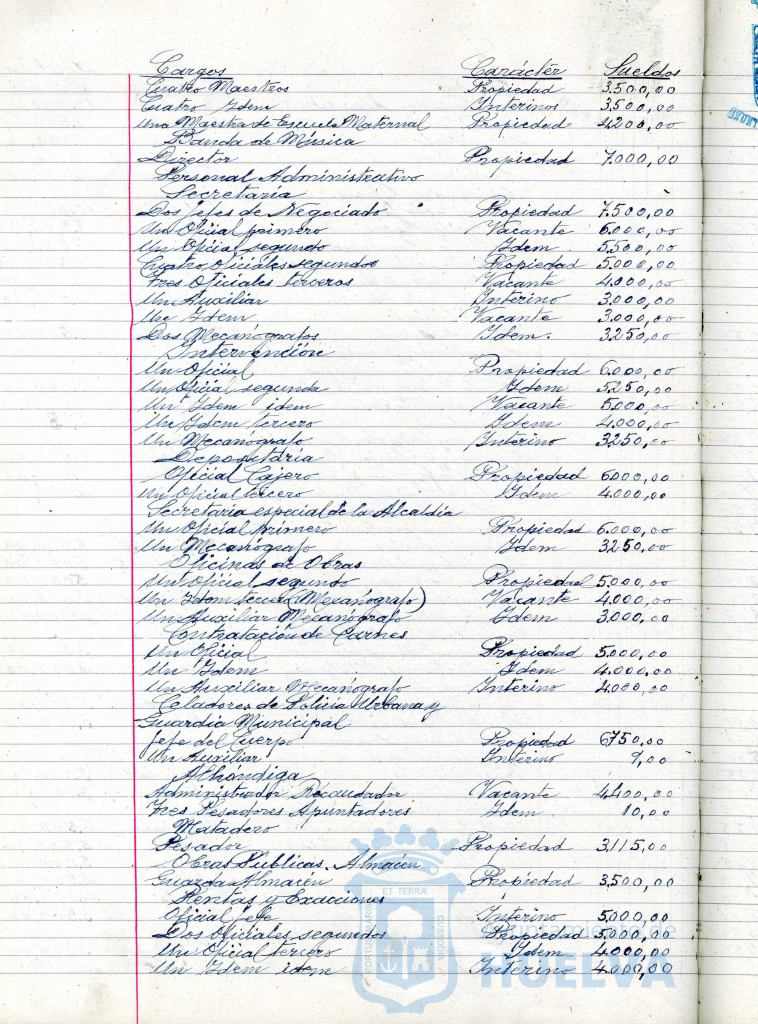 Cargos Carácter Sueldos
Cuatro Maestros Propiedad 3.500,00
Cuatro Idem Interinos 3.500,00
Una Maestra de Escuela Maternal Propiedad 4.200,00
Banda de Música
Director Propiedad 7.000,00
Personal Administrativo
Secretaria
Dos Jefes de Negociado Propiedad 7.500,00
Un Oficial primero Vacante 6.000,00
Un Oficial segundo Idem 5.500,00
Cuatro Oficiales segundos Propiedad 5.000,00
Tres Oficiales terceros Vacante 4.000,00
Un Auxiliar Interino 3.000,00
Un Idem Vacante 3.000,00
Dos Mecanógrafos Idem. 3.250,00
Intervención
Un Oficial Propiedad 6.000,00
Un Oficial segundo Idem 5.250,00
Un Idem idem Vacante 5.000,00
Un Idem tercero Idem 4.000,00
Un Mecanógrafo Interino 3.250,00
Depositaria
Oficial Cajero Propiedad 6.000,00
Un Oficial tercero Idem 4.000,00
Secretaria especial de la Alcaldia
Un Oficial primero Propiedad 6.000,00
Un Mecanógrafo Idem 3.250,00
Oficinas de Obras
Un Oficial segundo Propiedad 5.000,00
Un Idem tercero (Mecanógrafo) Vacante 4.000,00
Un Auxiliar Mecanógrafo Idem 3.000,00
Contratación de Carnes
Un Oficial Propiedad 5.000,00
Un Idem Idem 4.000,00
Un Auxiliar Mecanógrafo Interino 4.000,00
Celadores de Policia Urbana y
Guardia Municipal
Jefe del Cuerpo Propiedad 6.750,00
Un Auxiliar Interino 9,00
Alhóndiga
Administrador Recaudador Vacante 4.400,00
Tres Pesadores Apuntadores Idem 10,00
Matadero
Pesador Propiedad 3.115,00
Obras Públicas. Almacén
Guarda Almacén Propiedad 3.500,00
Rentas y Exacciones
Oficial jefe Interino 5.000,00
Dos Oficiales segundos Propiedad 5.000,00
Un Oficial tercero Idem 4.000,00
Un Idem idem Interino 4.000,00
ET TERRÆ
HUELVA